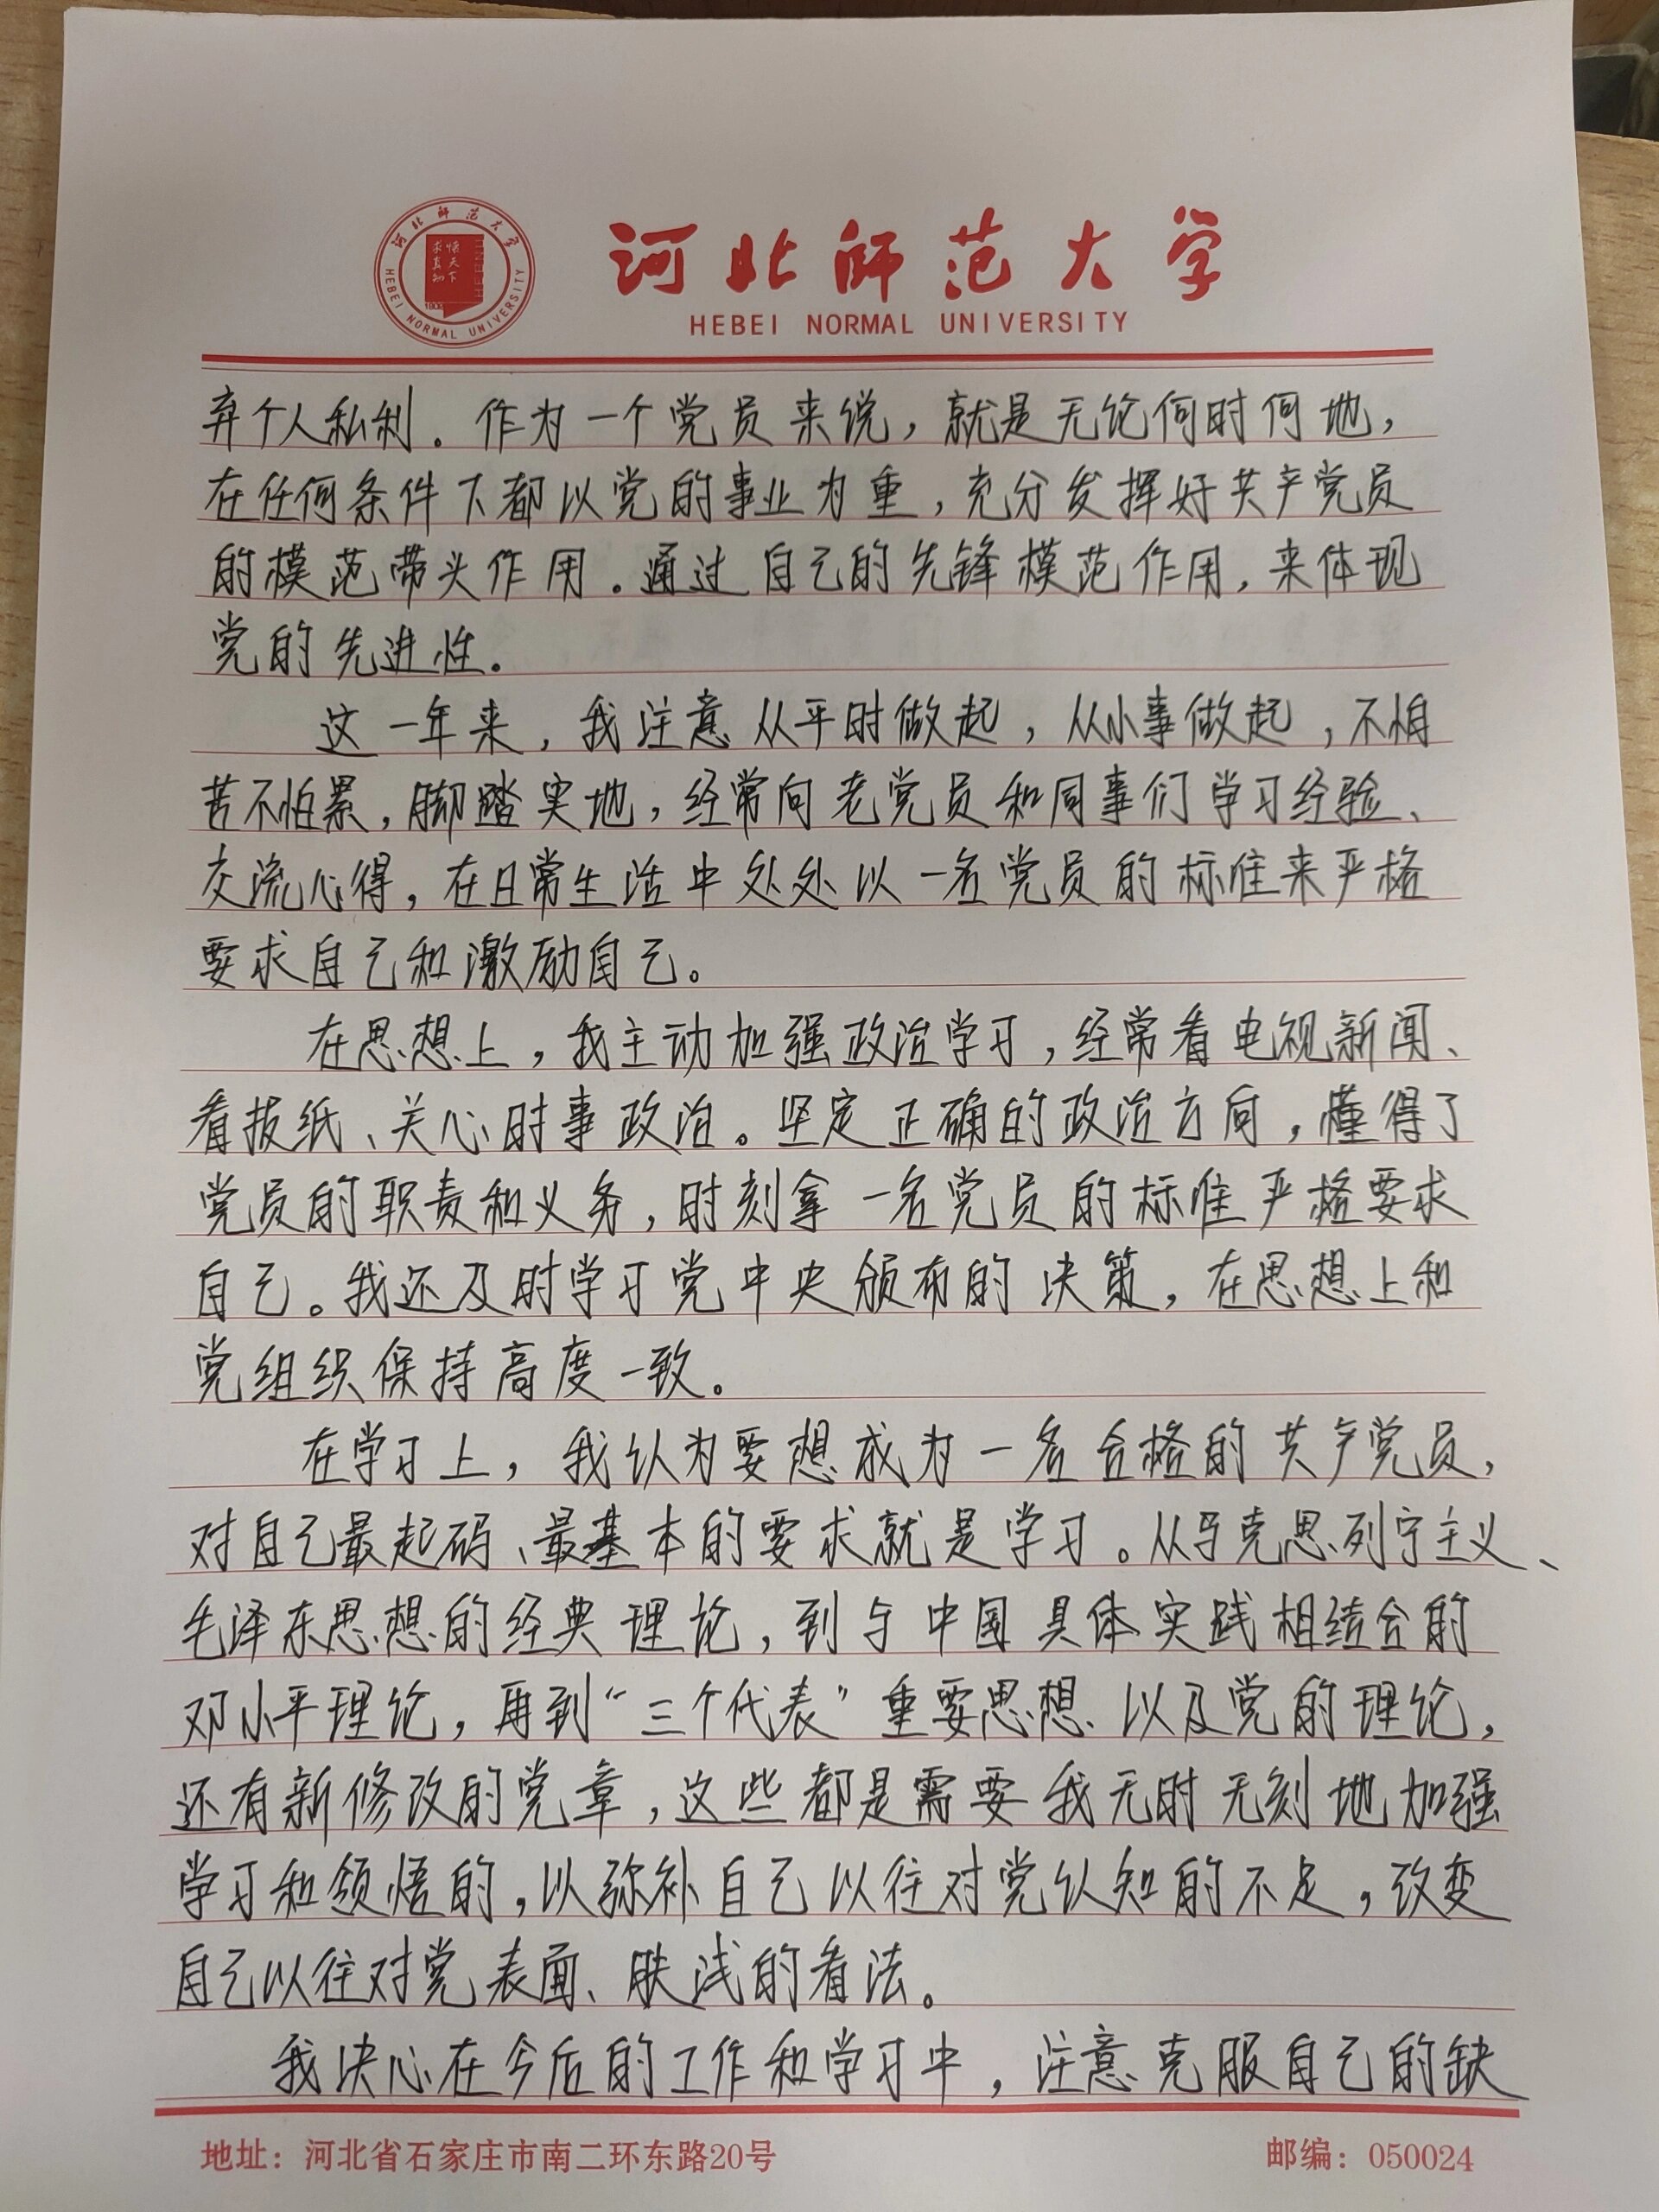 河北师范大学
HEBEI NORMAL UNIVERSITY
河北师范大学
HEBEI NORMAL UNIVERSITY
弃个人私利。作为一个党员来说，就是无论何时何地，
在任何条件下都以党的事业为重，充分发挥好共产党员
的模范带头作用。通过自己的先锋模范作用，来体现
党的先进性。
这一年来，我注意从平时做起，从小事做起，不怕
苦不怕累，脚踏实地，经常向老党员和同事们学习经验、
交流心得，在日常生活中处处以一名党员的标准来严格
要求自己和激励自己。
在思想上，我主动加强政治学习，经常看电视新闻、
看报纸、关心时事政治。坚定正确的政治方向，懂得了
党员的职责和义务，时刻拿一名党员的标准严格要求
自己。我还及时学习党中央颁布的决策，在思想上和
党组织保持高度一致。
在学习上，我认为要想成为一名合格的共产党员，
对自己最起码、最基本的要求就是学习。从马克思列宁主义、
毛泽东思想的经典理论，到与中国具体实践相结合的
邓小平理论，再到“三个代表”重要思想以及党的理论，
还有新修改的党章，这些都是需要我无时无刻地加强
学习和领悟的，以弥补自己以往对党认知的不足，改变
自己以往对党表面、肤浅的看法。
我决心在今后的工作和学习中，注意克服自己的缺
地址：河北省石家庄市南二环东路20号
邮编：050024